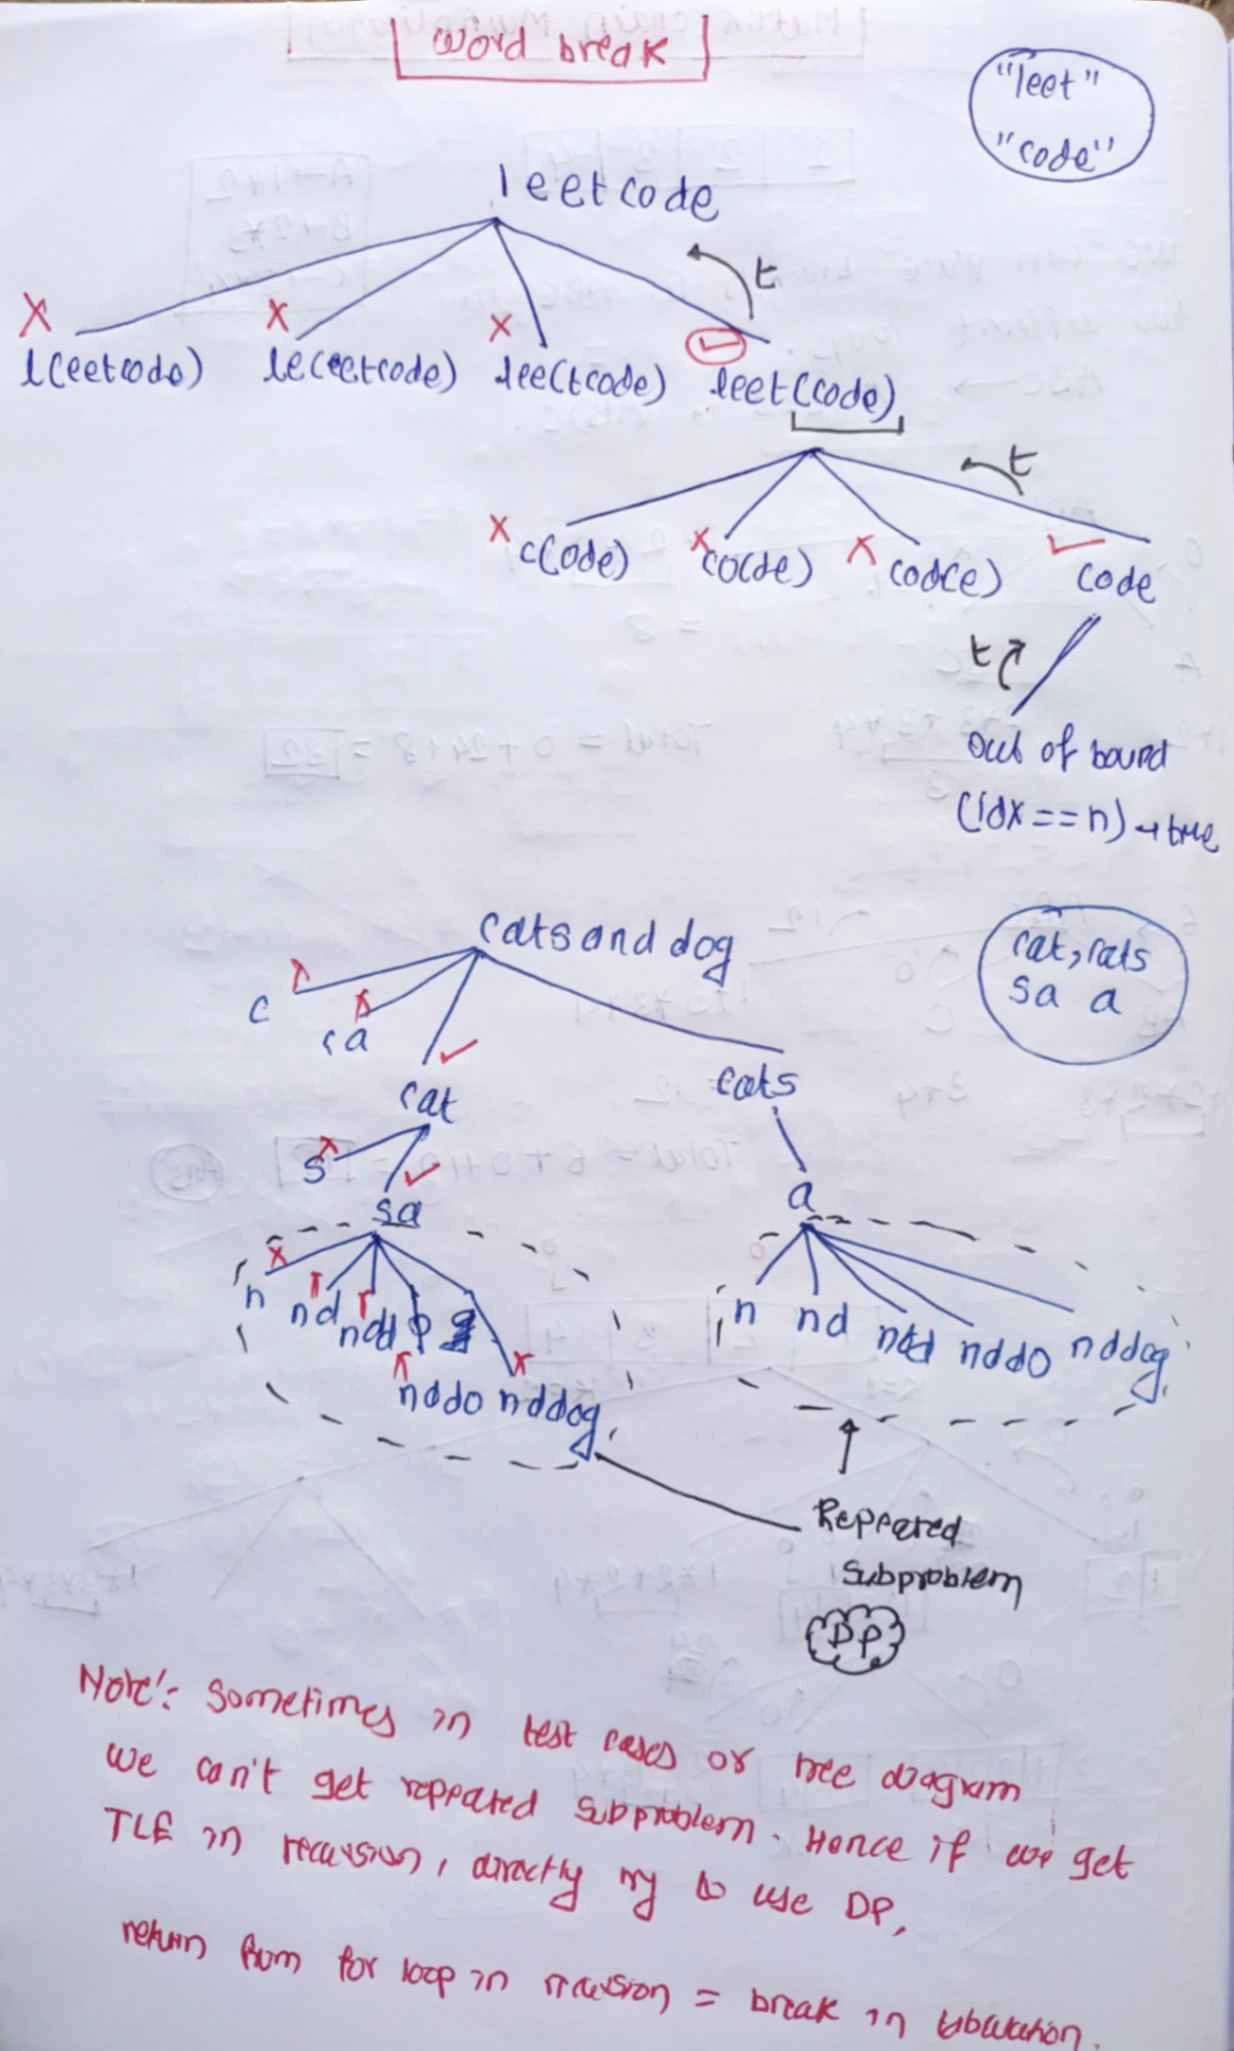 Word break
"leet"
"code"
leetcode
t
l(eetcode) le(etcode) lee(tcode) leet(code)
t
c(ode) co(de) cod(e) code
t
out of bound
(idx==n) → true
catsanddog
cat, cats
sa a
c
ca
cat
cats
s
sa
a
n nd ndd
nddo nddog
n nd ndd nddo nddog
Repeated
Subproblem
DP
Note: Sometimes in test cases or tree diagram
we can't get repeated subproblem. Hence if we get
TLE in recursion, directly try to use DP,
return from for loop in recursion = break in tabulation.